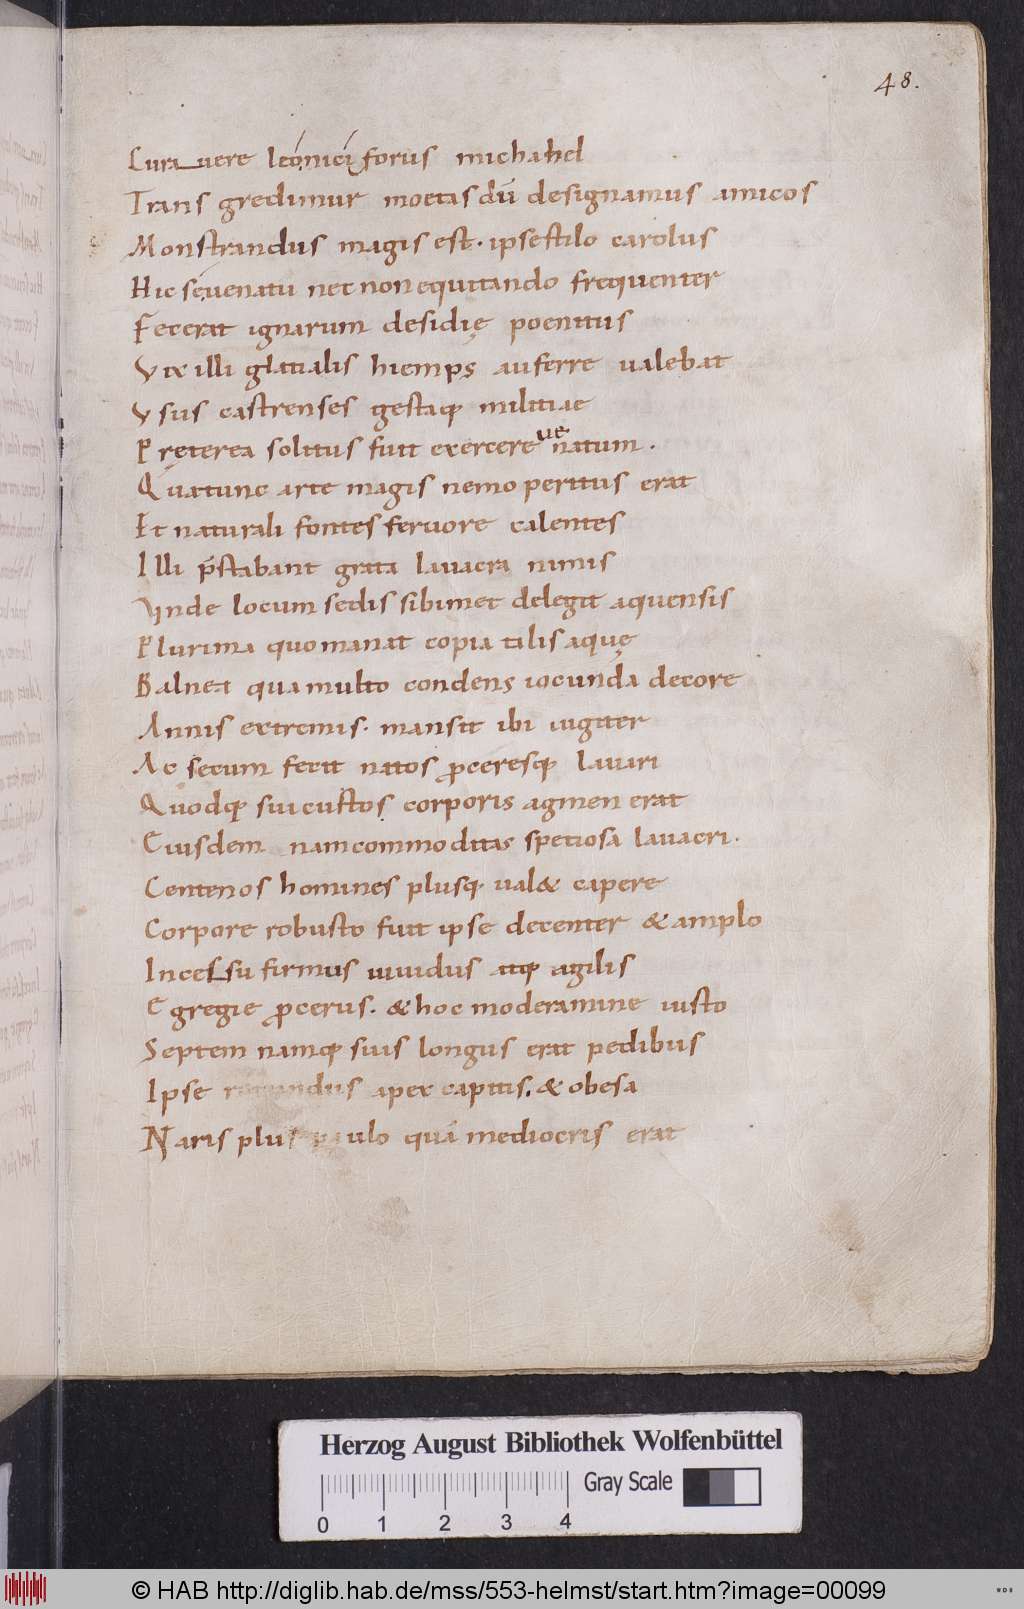 48.
Cura uere leonici forus michahel
Transgredimur moetas dū designamus amicos
Monstrandus magis est. ipse stilo carolus
Hic se uenatu nec non equitando frequenter
Fecerat ignarum desidię poenitus
Vix illi glatialis hiemps auferre ualebat
Vsus castrenses gestaq militiae
Pręterea solitus fuit exercere uenatum.
Qua tunc arte magis nemo peritus erat
Et naturali fontes feruore calentes
Illi p̄stabant grata lauacra nimis
Vnde locum sedis sibimet delegit aquensis
Plurima quo manat copia talis aquę
Balnea qua multo condens iocunda decore
Annis extremis. mansit ibi iugiter
Ac secum fecit natos proceresq lauari
Quodq sui custos corporis agmen erat
Eiusdem nam commoditas spetiosa lauacri.
Centenos homines plusq ual& capere
Corpore robusto fuit ipse decenter & amplo
Incessu firmus uiuidus atq agilis
Egregie procerus. & hoc moderamine iusto
Septem namq suis longus erat pedibus
Ipse rotundus apex capitis. & obesa
Naris plus paulo quā mediocris erat
Herzog August Bibliothek Wolfenbüttel
Gray Scale
0 1 2 3 4
© HAB http://diglib.hab.de/mss/553-helmst/start.htm?image=00099